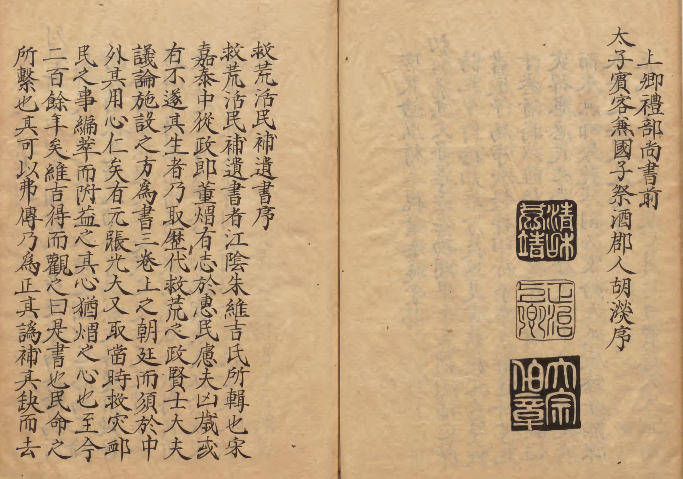 上卿禮部尚書前
太子賓客兼國子祭酒郡人胡濙序
救荒活民補遺書序
救荒活民補遺書者江陰朱維吉氏所輯也宋
嘉泰中從政郎董煟有志於惠民慮夫凶歲或
有不遂其生者乃取歷代救荒之政賢士大夫
議論施設之方為書三卷上之朝廷而須於中
外其用心仁矣有元張光大又取當時救灾䘏
民之事編萃而附益之其心猶煟之心也至今
二百餘年矣維吉得而觀之曰是書也民命之
所繫也其可以弗傳乃為正其譌補其缺而去